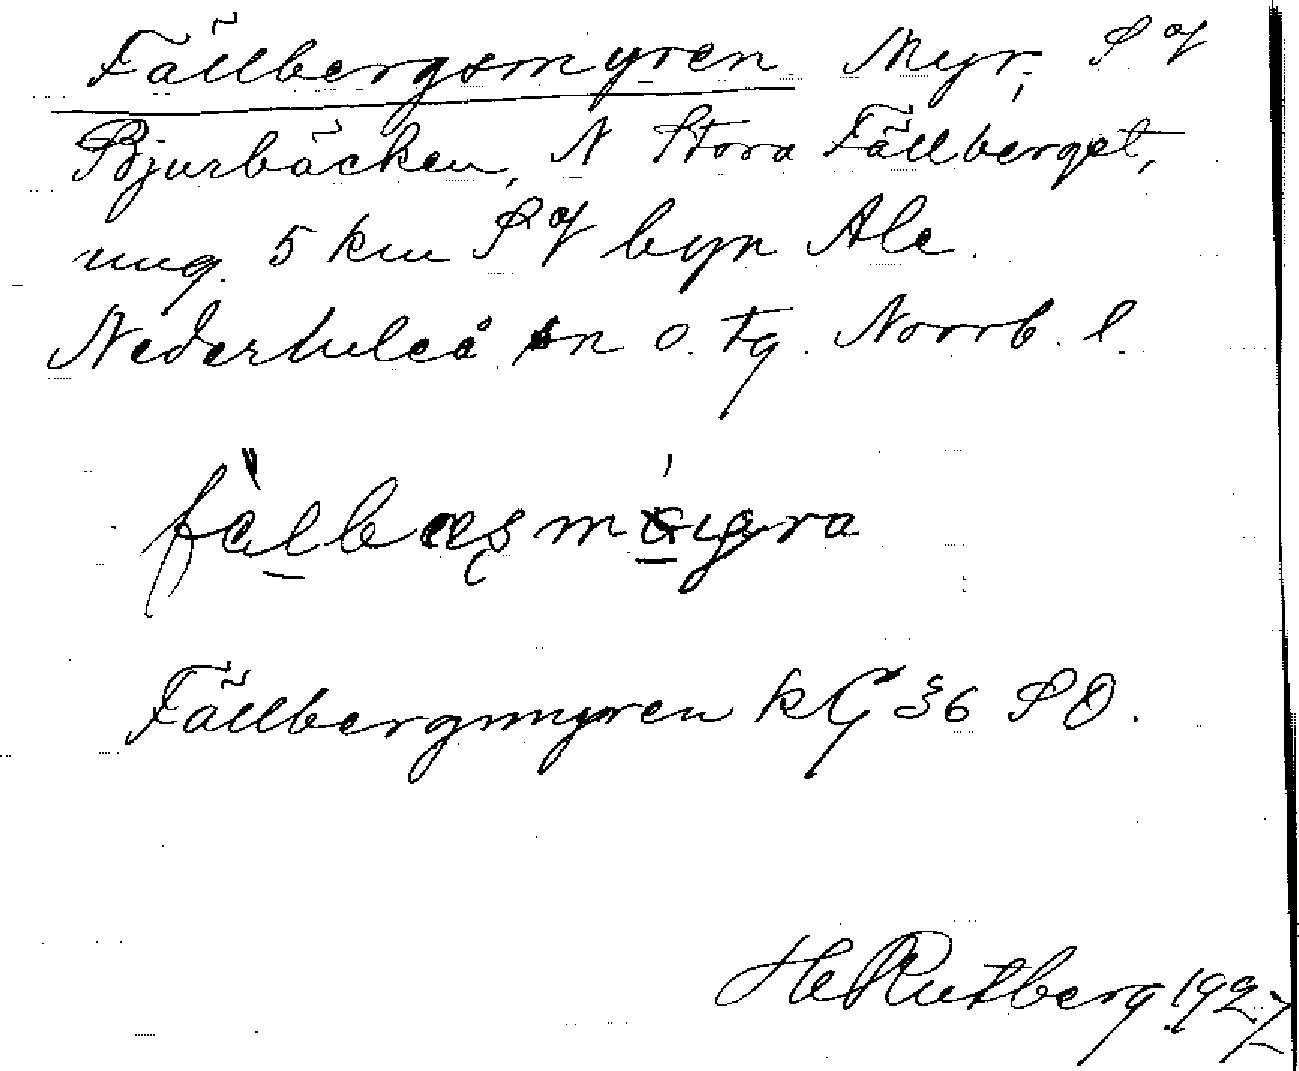 Fällbergsmyren Myr, S of
Bjurbäcken, N Stora Fällberget,
ung. 5 km S of byn Ale.
Nederluleå sn o. tg. Norrb. l.
Fällbergmyren kG §6 SO.
H Rutberg 1927